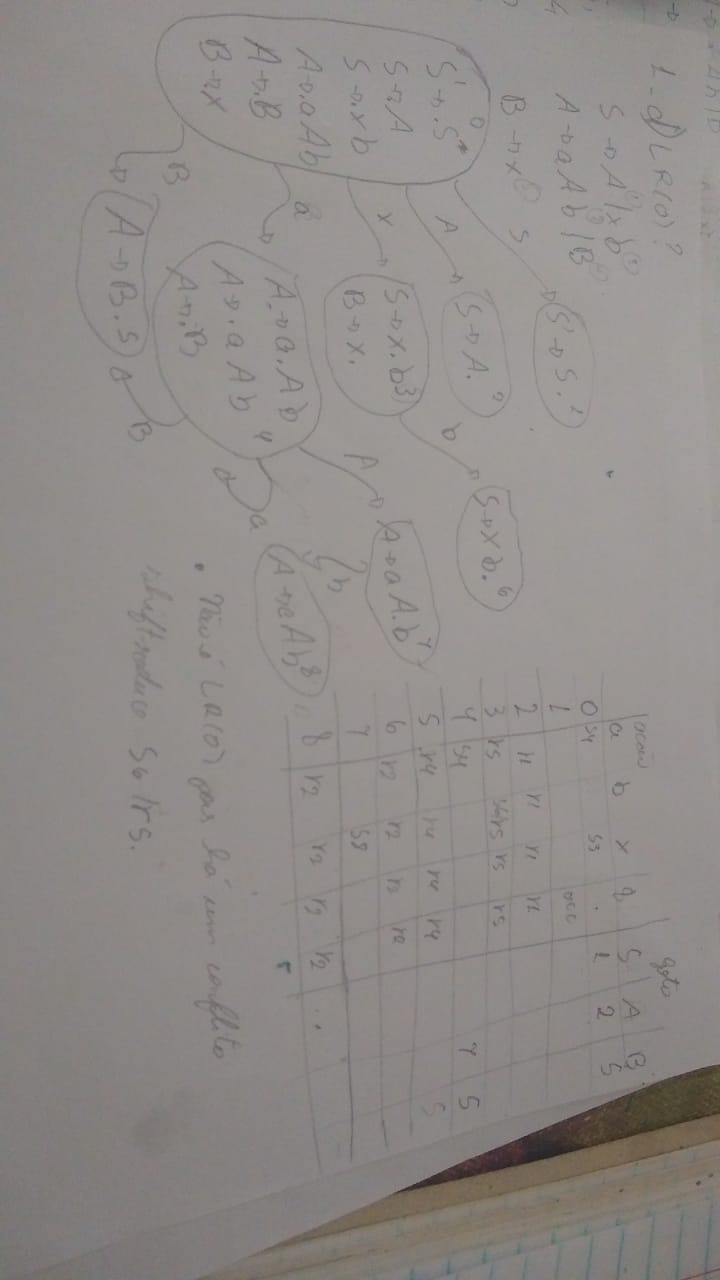 1-d) LR(0)?
S → A① | x b②
A → aAb③ | B④
B → x⑤
S
S' → S. 1
0
S' → .S
S → .A
S → .xb
A → .aAb
A → .B
B → .x
A
S → A. 2
x
S → x.b 3
B → x.
b
S → xb. 6
a
A → a.Ab
A → .aAb 4
A → .B
A
A → aA.b 7
b
A → aAb 8
a
B
A → B. 5
B
acção goto
a b x $ S A B
0 s4 s3 . 1 2 5
1 acc
2 r1 r1 r1 r1
3 r5 s6/r5 r5 r5
4 s4 7 5
5 r4 r4 r4 r4 5
6 r2 r2 r2 r2
7 s8
8 r2 r2 r2 r2 ..
• Não é LR(0) pois há um conflito
shift-reduce s6/r5.